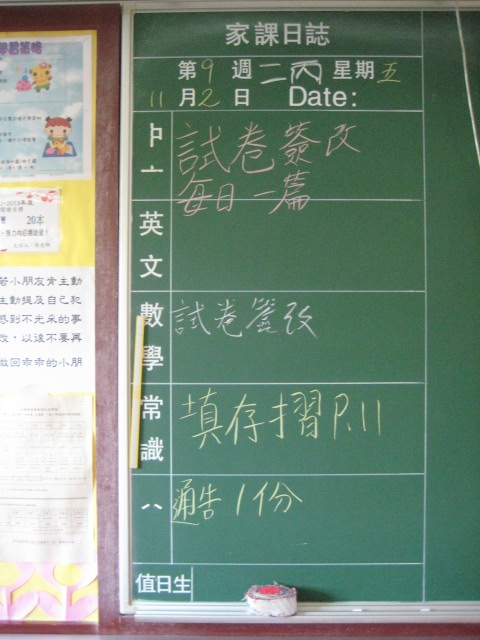 學習策略
20本
若小朋友肯主動
主動提及自己犯
感到不光采的事
改，以後不要再
做回乖乖的小朋
家課日誌
第9週二丙星期五
11月2日 Date:
試卷簽改
每日一篇
英文
數學 試卷簽改
常識 填存摺P.11
通告1份
值日生